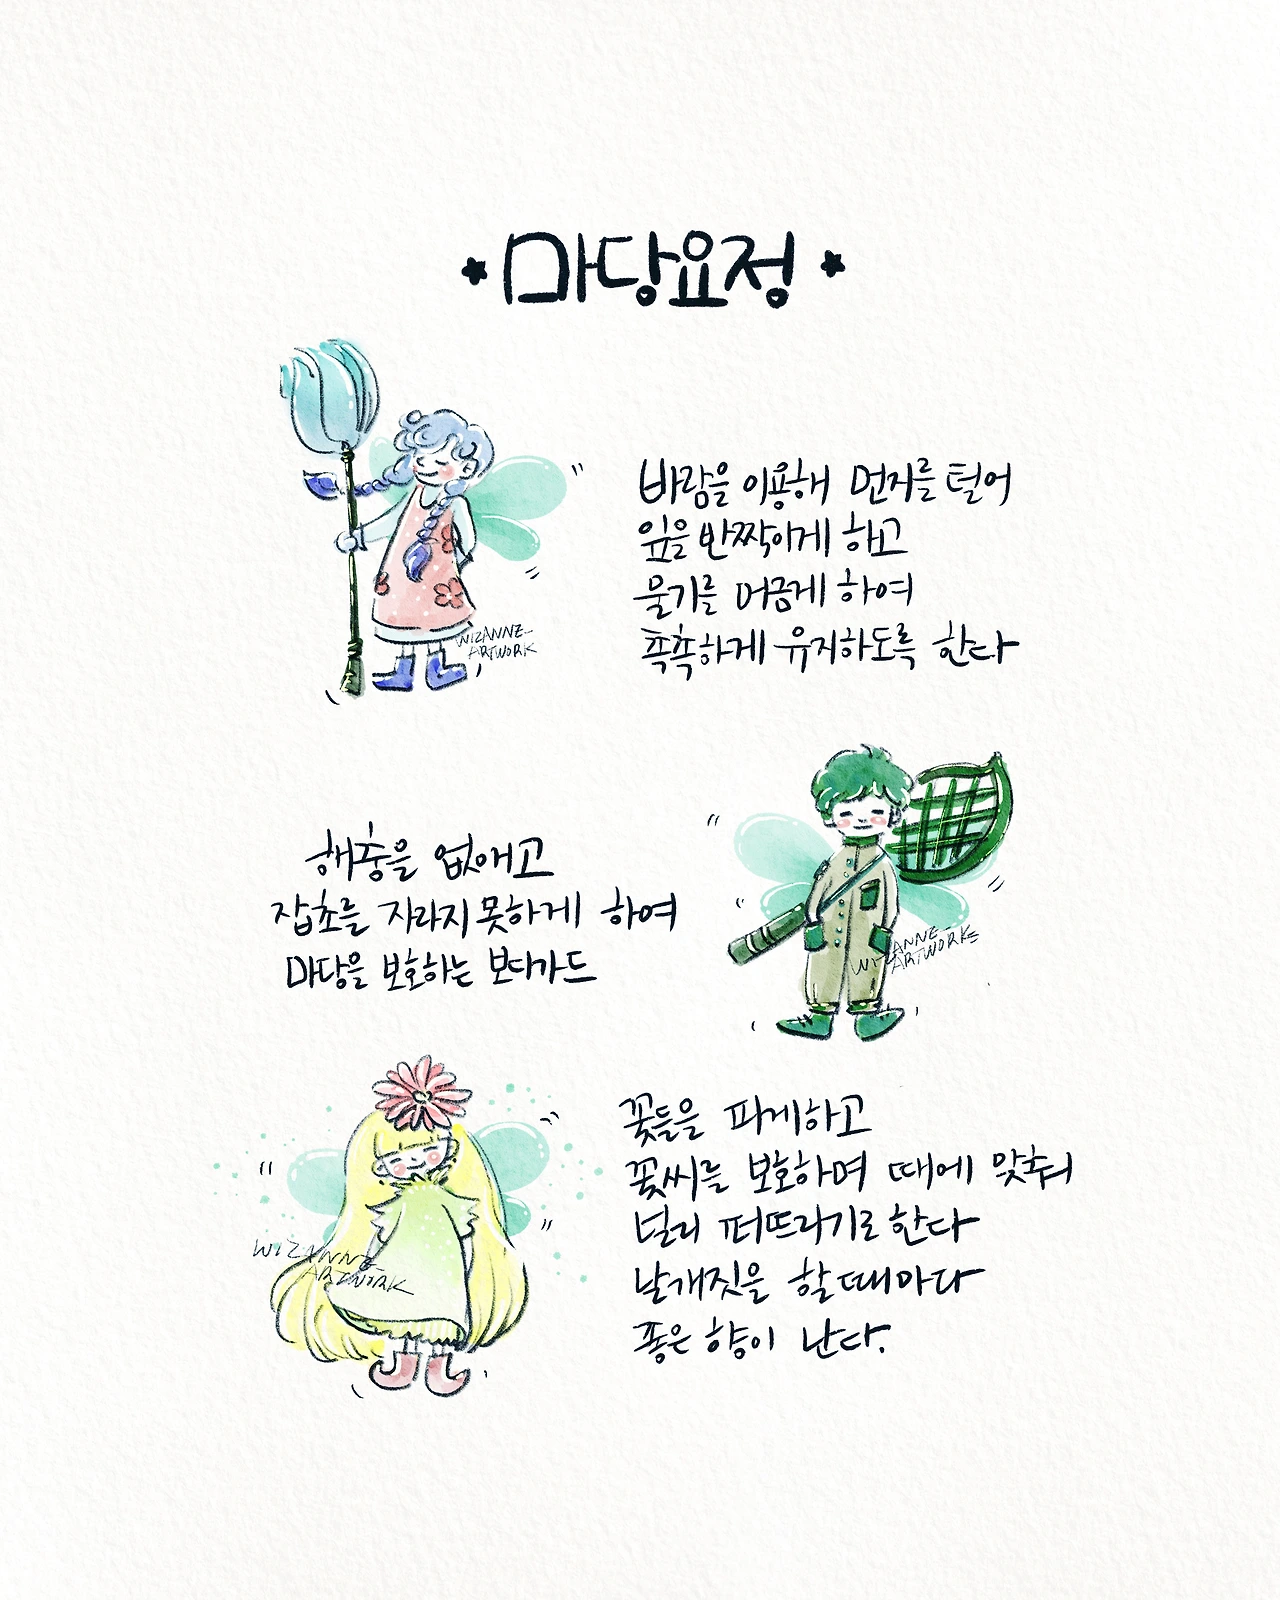 마당요정
바람을 이용해 먼지를 털어
잎을 반짝이게 하고
물기를 머금게 하여
촉촉하게 유지하도록 한다
WIZANNE
ARTWORK
해충을 없애고
잡초를 자라지 못하게 하여
마당을 보호하는 보디가드
WIZANNE
ARTWORK
꽃들을 피게하고
꽃씨를 보호하며 때에 맞춰
널리 퍼뜨리기로 한다
날개짓을 할 때마다
좋은 향이 난다.
WIZANNE
ARTWORK